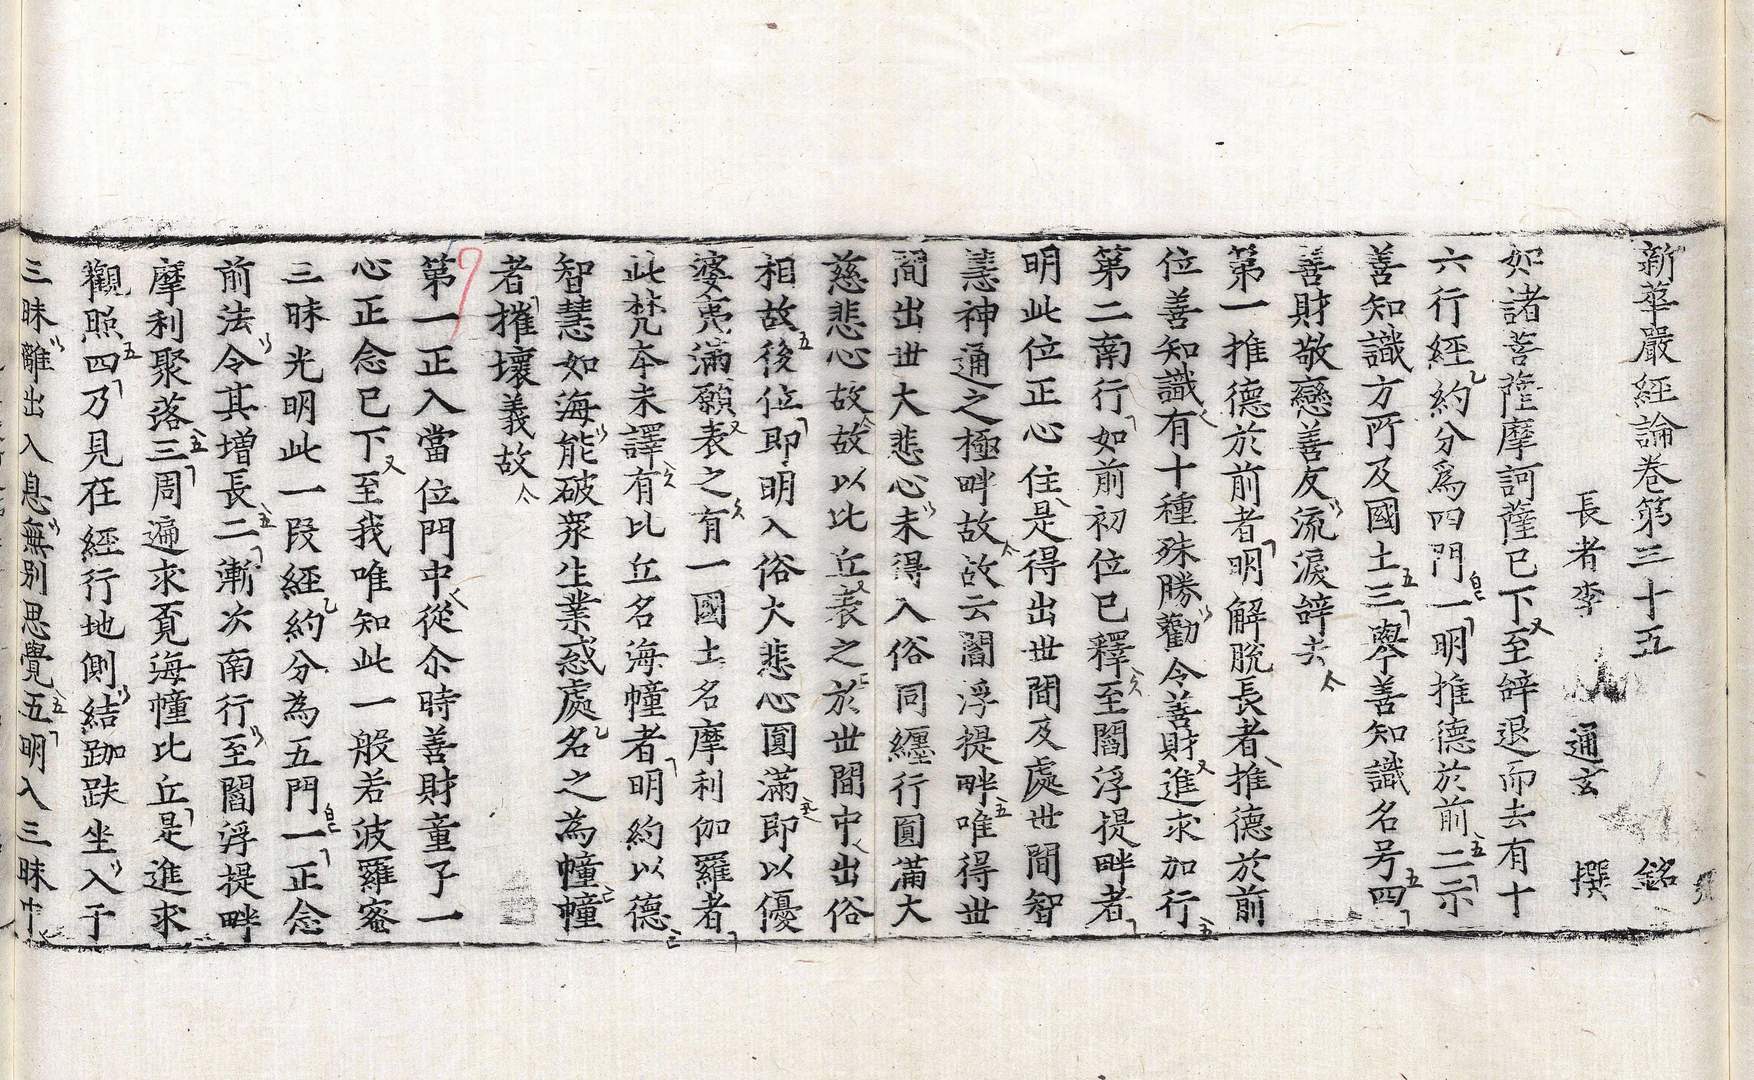 新華嚴經論卷第三十五 銘
長者李 通玄 撰
如諸菩薩摩訶薩已下至辝退而去有十
六行經約分爲四門一明推德於前二示
善知識方所及國土三擧善知識名号四
善財敬戀善友流淚辝去
第一推德於前者明解脫長者推德於前
位善知識有十種殊勝勸令善財進求加行
第二南行如前初位已釋至閻浮提畔者
明此位正心住是得出世間及處世間智
慧神通之極畔故故云閻浮提畔唯得世
間出世大悲心未得入俗同纏行圓滿大
慈悲心故故以比丘表之於世間中出俗
相故後位即明入俗大悲心圓滿即以優
婆夷滿願表之有一國土名摩利伽羅者
此梵夲未譯有比丘名海幢者明約以德
智慧如海能破衆生業惑處名之為幢幢
者摧壞義故
第一正入當位門中從尒時善財童子一
心正念已下至我唯知此一般若波羅蜜
三昧光明此一段經約分為五門一正念
前法令其增長二漸次南行至閻浮提畔
摩利聚落三周遍求覓海幢比丘是進求
觀照四乃見在經行地側結跏趺坐入于
三昧離出入息無別思覺五明入三昧中